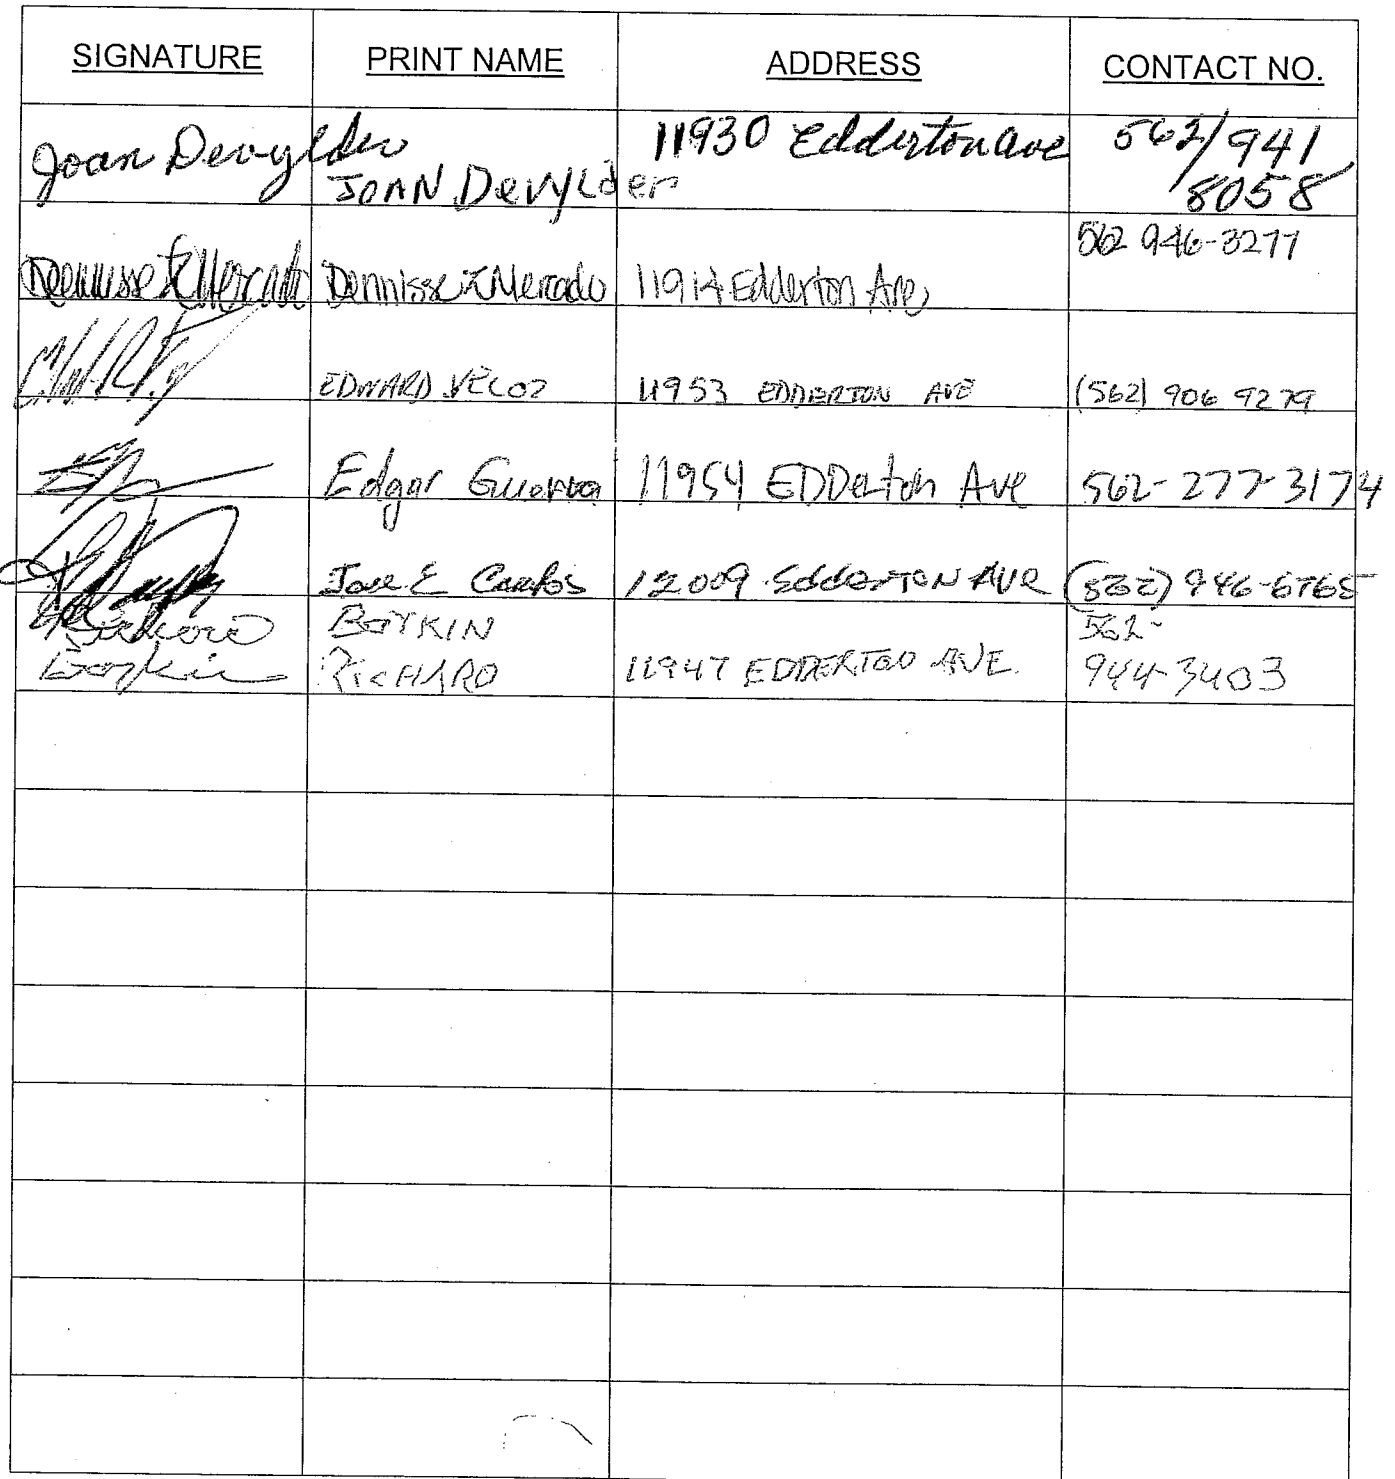 SIGNATURE PRINT NAME ADDRESS CONTACT NO.
Joan Devylder 11930 Edderton ave 562/941
JOAN Devylder 8058
562 946-3277
Dennisse Mercado Dennisse I Mercado 11914 Edderton Ave,
EDWARD VELOZ 11953 EDDERTON AVE (562) 906 9279
Edgar Guerra 11954 EDDerton Ave 562-277-3174
Jose E Campos 12009 EDDERTON AVE (562) 946-6765
Richard BOYKIN 562-
Boykin RICHARD 11947 EDDERTON AVE. 944-3403